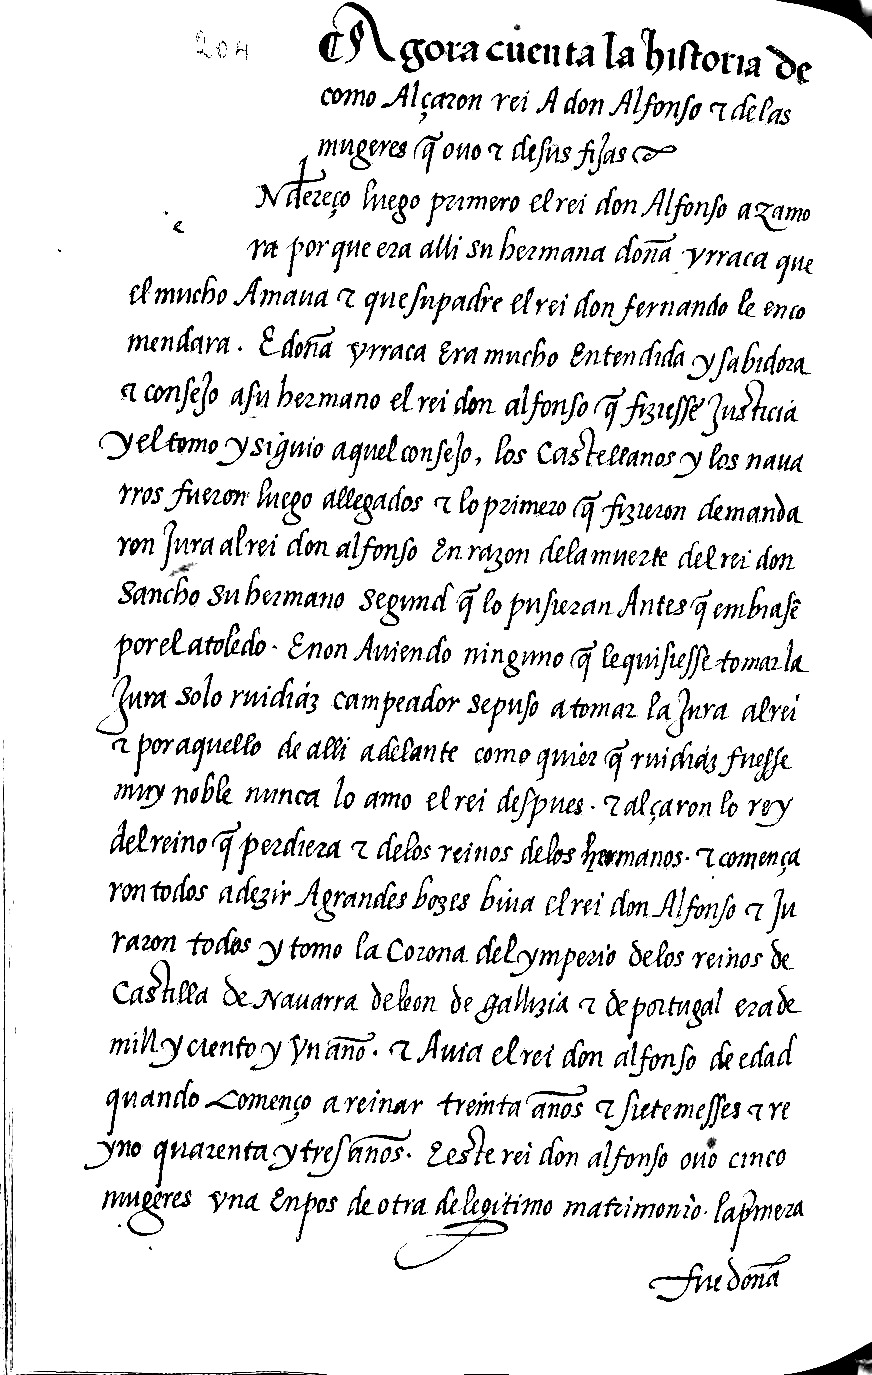 204
¶ Agora cuenta la historia de
como Alçaron rei A don Alfonso τ de las
mugeres q̃ ouo τ de sus fijas
Ndereço luego primero el rei don Alfonso a zamo
e
ra por que era alli su hermana doña yrraca que
el mucho Amaua τ que su padre el rei don fernando le enco
mendara. E doña yrraca Era mucho Entendida y sabidora
τ consejo a su hermano el rei don alfonso q̃ fiziesse Justicia
y el tomo y siguio aquel consejo, los Castellanos y los naua
rros fueron luego allegados τ lo primero q̃ fizieron demanda
ron Jura al rei don alfonso En razon de la muerte del rei don
Sancho Su hermano segund q̃ lo pusieran Antes q̃ embiasẽ
por el a toledo. E non Auiendo ninguno q̃ le quisiesse tomar la
Jura solo ruidiáz campeador se puso a tomar la Jura al rei
τ por aquello de alli adelante como quier q̃ ruidiáz fuesse
muy noble nunca lo amo el rei despues. τ alçaron lo rey
del reino q̃ perdiera τ de los reinos de los hermanos. τ comença
ron todos a dezir A grandes bozes biua el rei don Alfonso τ Ju
raron todos y tomo la Corona del ymperio de los reinos de
Castilla de Nauarra de leon de gallizia τ de portugal era de
mill y ciento y Vn año. τ Auia el rei don alfonso de edad
quando Començo a reinar treinta años τ siete messes τ re
yno quarenta y tres años. E este rei don alfonso ouo cinco
mugeres vna Enpos de otra de legitimo matrimonio. la p̃mera
fue doña